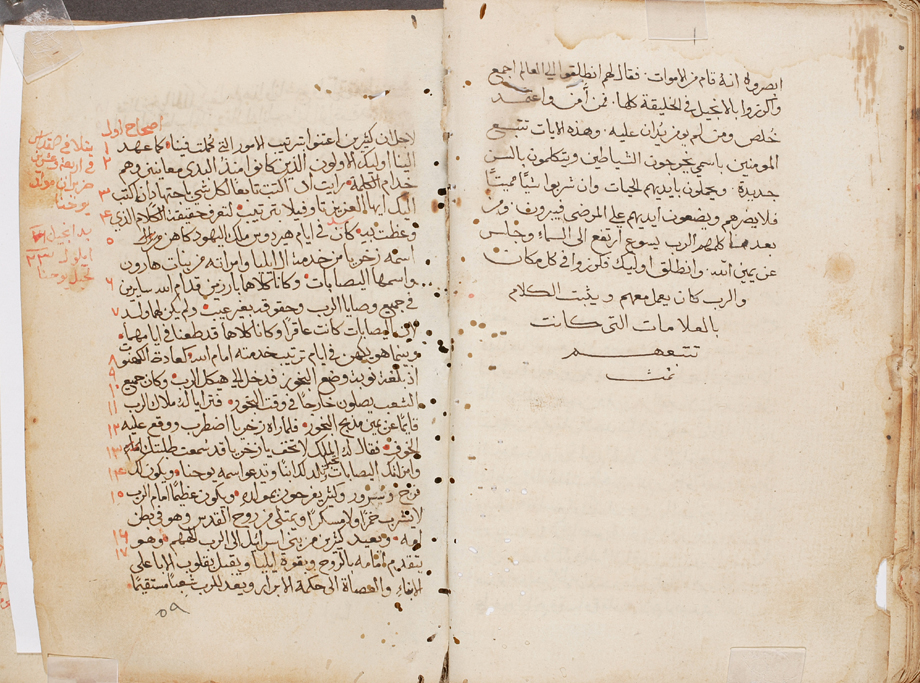 ابصروه انه قام من الاموات. فقال لهم انطلقوا الى العالم اجمع
واكرزوا بالانجيل في الخليقة كلها. فمن آمن واعتمد
خلص ومن لم يومن يدان عليه. وهذه الايات تتبع
المومنين باسمي يخرجون الشياطين ويتكلمون بالسن
جديدة. ويحملون بايديهم الحيات وان شربوا شيًا مميتًا
فلا يضرهم ويضعون ايديهم على المرضى فيبرون. ومن
بعد ما كلمهم الرب يسوع ارتفع الى السماء وجلس
عن يمين الله. وانطلق اوليك فكرزوا في كل مكان
والرب كان يعمل معهم ويثبت الكلام
بالعلامات التي كانت
تتبعهم
تمت
اصحاح اول
لاجل ان كثيرين اعتنوا بترتيب الامور التي كملت فينا كما عهد
الينا اوليك الاولون الذين كانوا منذ البدي معاينين وهم
خدام الكلمة رايت انا اذ كنت تابعا لكل شي باجتهاد ان اكتب
اليك ايها العزيز تاوفيلا بترتيب لتعرف حقيقة الكلام الذي
وعظت به كان في ايام هيرودس ملك اليهود كاهن
اسمه زخريا من خدمة ال ابيا وامراته من بنات هارون
واسمها اليصابات وكانا كلاهما بارين قدام الله سايرين
في جميع وصايا الرب وحقوقه بغير عيب ولم يكن لهما ولد
لان اليصابات كانت عاقرا وكانا كلاهما قد طعنا في ايامهما
وبينما هو يكهن في ايام ترتيب خدمته امام الله كعادة الكهنوت
اذ بلغته نوبة وضع البخور فدخل الى هيكل الرب وكان جميع
الشعب يصلون خارجًا في وقت البخور فترايا له ملاك الرب
قايمًا عن يمين مذبح البخور فلما راه زخريا اضطرب ووقع عليه
الخوف فقال له الملاك لا تخف يا زخريا قد سمعت طلبتك
وامراتك اليصابات تلد لك ابنًا وتدعو اسمه يوحنا ويكون لك
فرح وسرور وكثير يفرحون بمولده ويكون عظيمًا امام الرب
لا يشرب خمرًا ولا مسكرًا ويمتلي من روح القدس وهو في بطن
امه ويعيد كثيرين من بني اسرائيل الى الرب الههم وهو
يتقدم امامه بالروح وبقوة ايليا ويقبل بقلوب الابا على
الابناء والعصاة الى حكمة الابرار ويعد للرب شعبًا مستقيمًا
٥٩